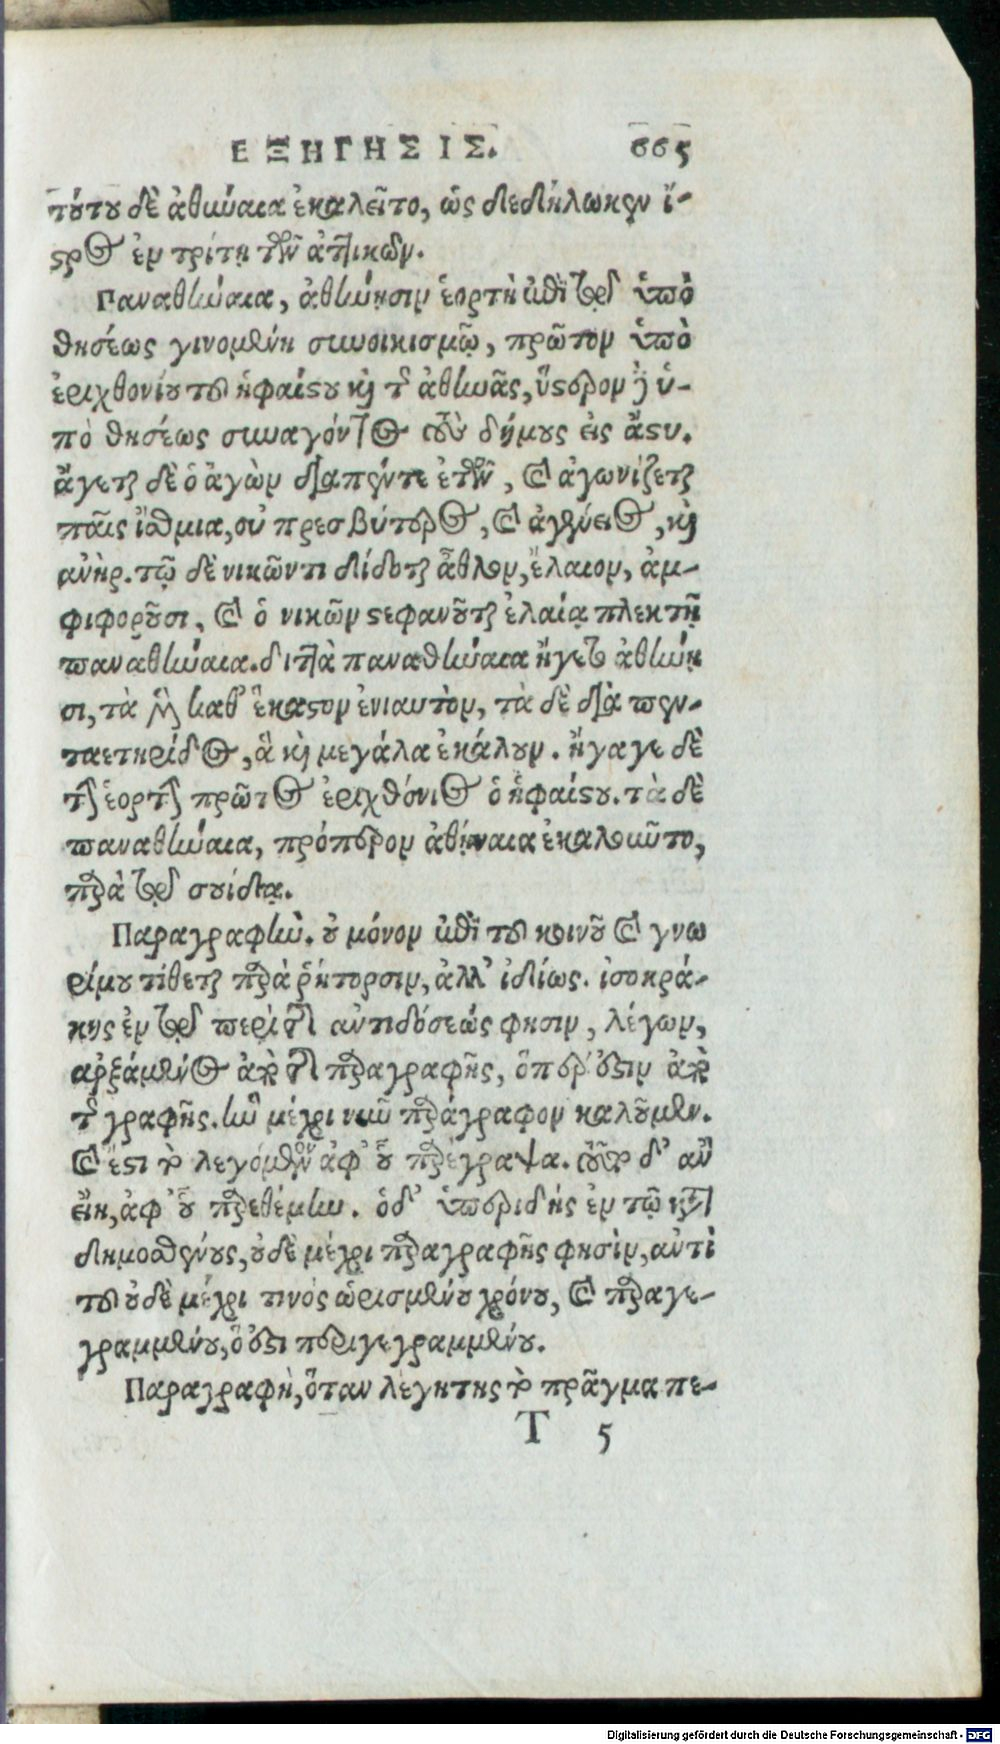 ΕΞΗΓΗΣΙΣ. 665
τούτου δὲ ἀθήναια ἐκαλεῖτο, ὡς δεδήλωκεν ἴ-
στρος ἐν τρίτῃ τῶν ἀττικῶν.
Παναθήναια, ἀθήνησιν ἑορτὴ ἐπὶ τῷ ὑπὸ
θησέως γινομένη συνοικισμῷ, πρῶτον ὑπὸ
ἐριχθονίου τοῦ ἡφαίστου καὶ τῆς ἀθηνᾶς, ὕστερον δὲ ὑ-
πὸ θησέως συναγόντος τοὺς δήμους εἰς ἄστυ.
ἄγεται δὲ ὁ ἀγὼν διαπέντε ἐτῶν, καὶ ἀγωνίζεται
παῖς ἴσθμια, οὐ πρεσβύτερος, καὶ ἀγένειος, καὶ
ἀνὴρ. τῷ δὲ νικῶντι δίδοται ἆθλον, ἔλαιον, ἀμ-
φιφοροῦσι, καὶ ὁ νικῶν στεφανοῦται ἐλαίᾳ πλεκτῇ
παναθήναια. διττὰ παναθήναια ἤγετο ἀθήνη
σι, τὰ μὲν καθ' ἕκαστον ἐνιαυτὸν, τὰ δὲ διὰ πεν-
ταετηρίδος, ἃ καὶ μεγάλα ἐκάλουν. ἤγαγε δὲ
τὴν ἑορτὴν πρῶτος ἐριχθόνιος ὁ ἡφαίστου. τὰ δὲ
παναθήναια, πρότερον ἀθήναια ἐκαλοῦντο,
παρὰ τῷ σουίδᾳ.
Παραγραφὴν. οὐ μόνον ἐπὶ τοῦ κοινοῦ καὶ γνω
ρίμου τίθεται παρὰ ῥήτορσιν, ἀλλ' ἰδίως. ἰσοκρά-
της ἐν τῷ περὶ τῆς ἀντιδόσεώς φησιν, λέγων,
ἀρξάμενος ἀπὸ τῆς παραγραφῆς, ὅπερ ἐστιν ἀπὸ
τῆς γραφῆς. ἣν μέχρι νῦν παράγραφον καλοῦμεν.
καὶ ἔστι τὸ λεγόμενον ἀφ' οὗ παρέγραψα. τοῦτο δ' ἂν
εἴη, ἀφ' οὗ παρεθέμην. ὁ δ' ὑπεριδής ἐν τῷ κατὰ
δημοσθένους, οὐδὲ μέχρι παραγραφῆς φησὶν, ἀντὶ
τοῦ οὐδὲ μέχρι τινός ὡρισμένου χρόνου, καὶ παραγε-
γραμμένου, ὅ ἐστι περιγεγραμμένου.
Παραγραφὴ, ὅταν λέγη της τὸ πρᾶγμα πε-
T 5
Digitalisierung gefördert durch die Deutsche Forschungsgemeinschaft - DFG